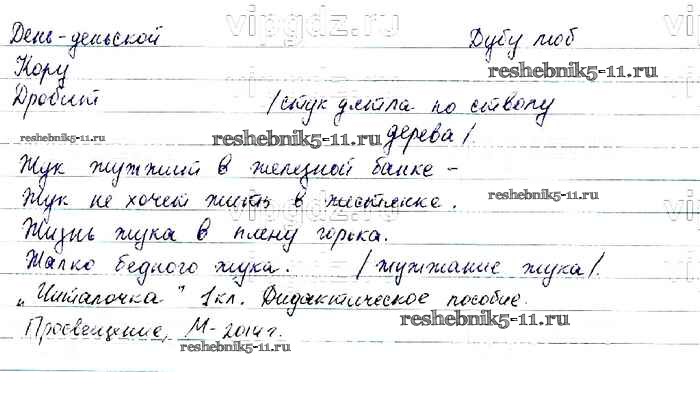 День-деньской Дубу люб
Кору
Дробит /стук дятла по стволу
дерева/.
Жук жужжит в железной банке -
Жук не хочет жить в жестянке.
Жизнь жука в плену горька.
Жалко бедного жука. /жужжание жука/.
„Читалочка" 1кл. Дидактическое пособие.
Просвещение, М-2014г.
vipgdz.ru
vipgdz.ru
reshebnik5-11.ru
reshebnik5-11.ru
reshebnik5-11.ru
vipgdz.ru
reshebnik5-11.ru
vipgdz.ru
reshebnik5-11.ru
reshebnik5-11.ru